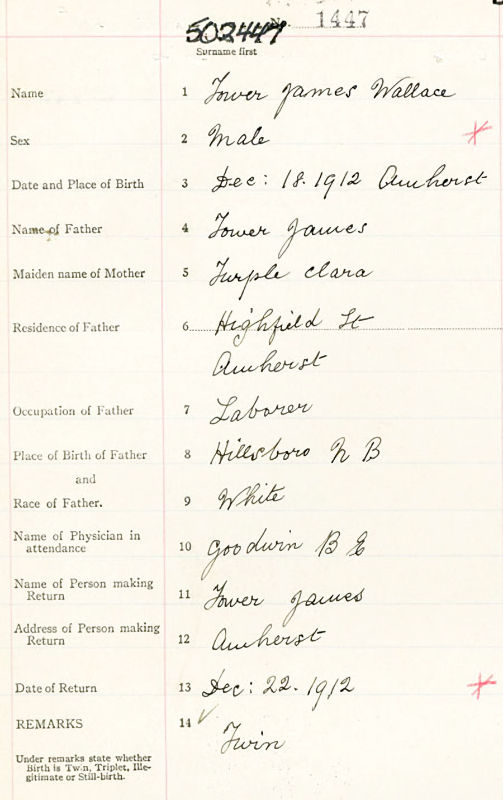 502447
No. 1447
Surname first
Name 1 Tower James Wallace
Sex 2 Male
Date and Place of Birth 3 Dec: 18. 1912 Amherst
Name of Father 4 Tower James
Maiden name of Mother 5 Turple Clara
Residence of Father 6 Highfield St
Amherst
Occupation of Father 7 Laborer
Place of Birth of Father 8 Hillsboro N B
and
Race of Father. 9 White
Name of Physician in
attendance 10 Goodwin B E
Name of Person making
Return 11 Tower James
Address of Person making
Return 12 Amherst
Date of Return 13 Dec: 22. 1912
REMARKS 14
Twin
Under remarks state whether
Birth is Twin, Triplet, Ille-
gitimate or Still-birth.